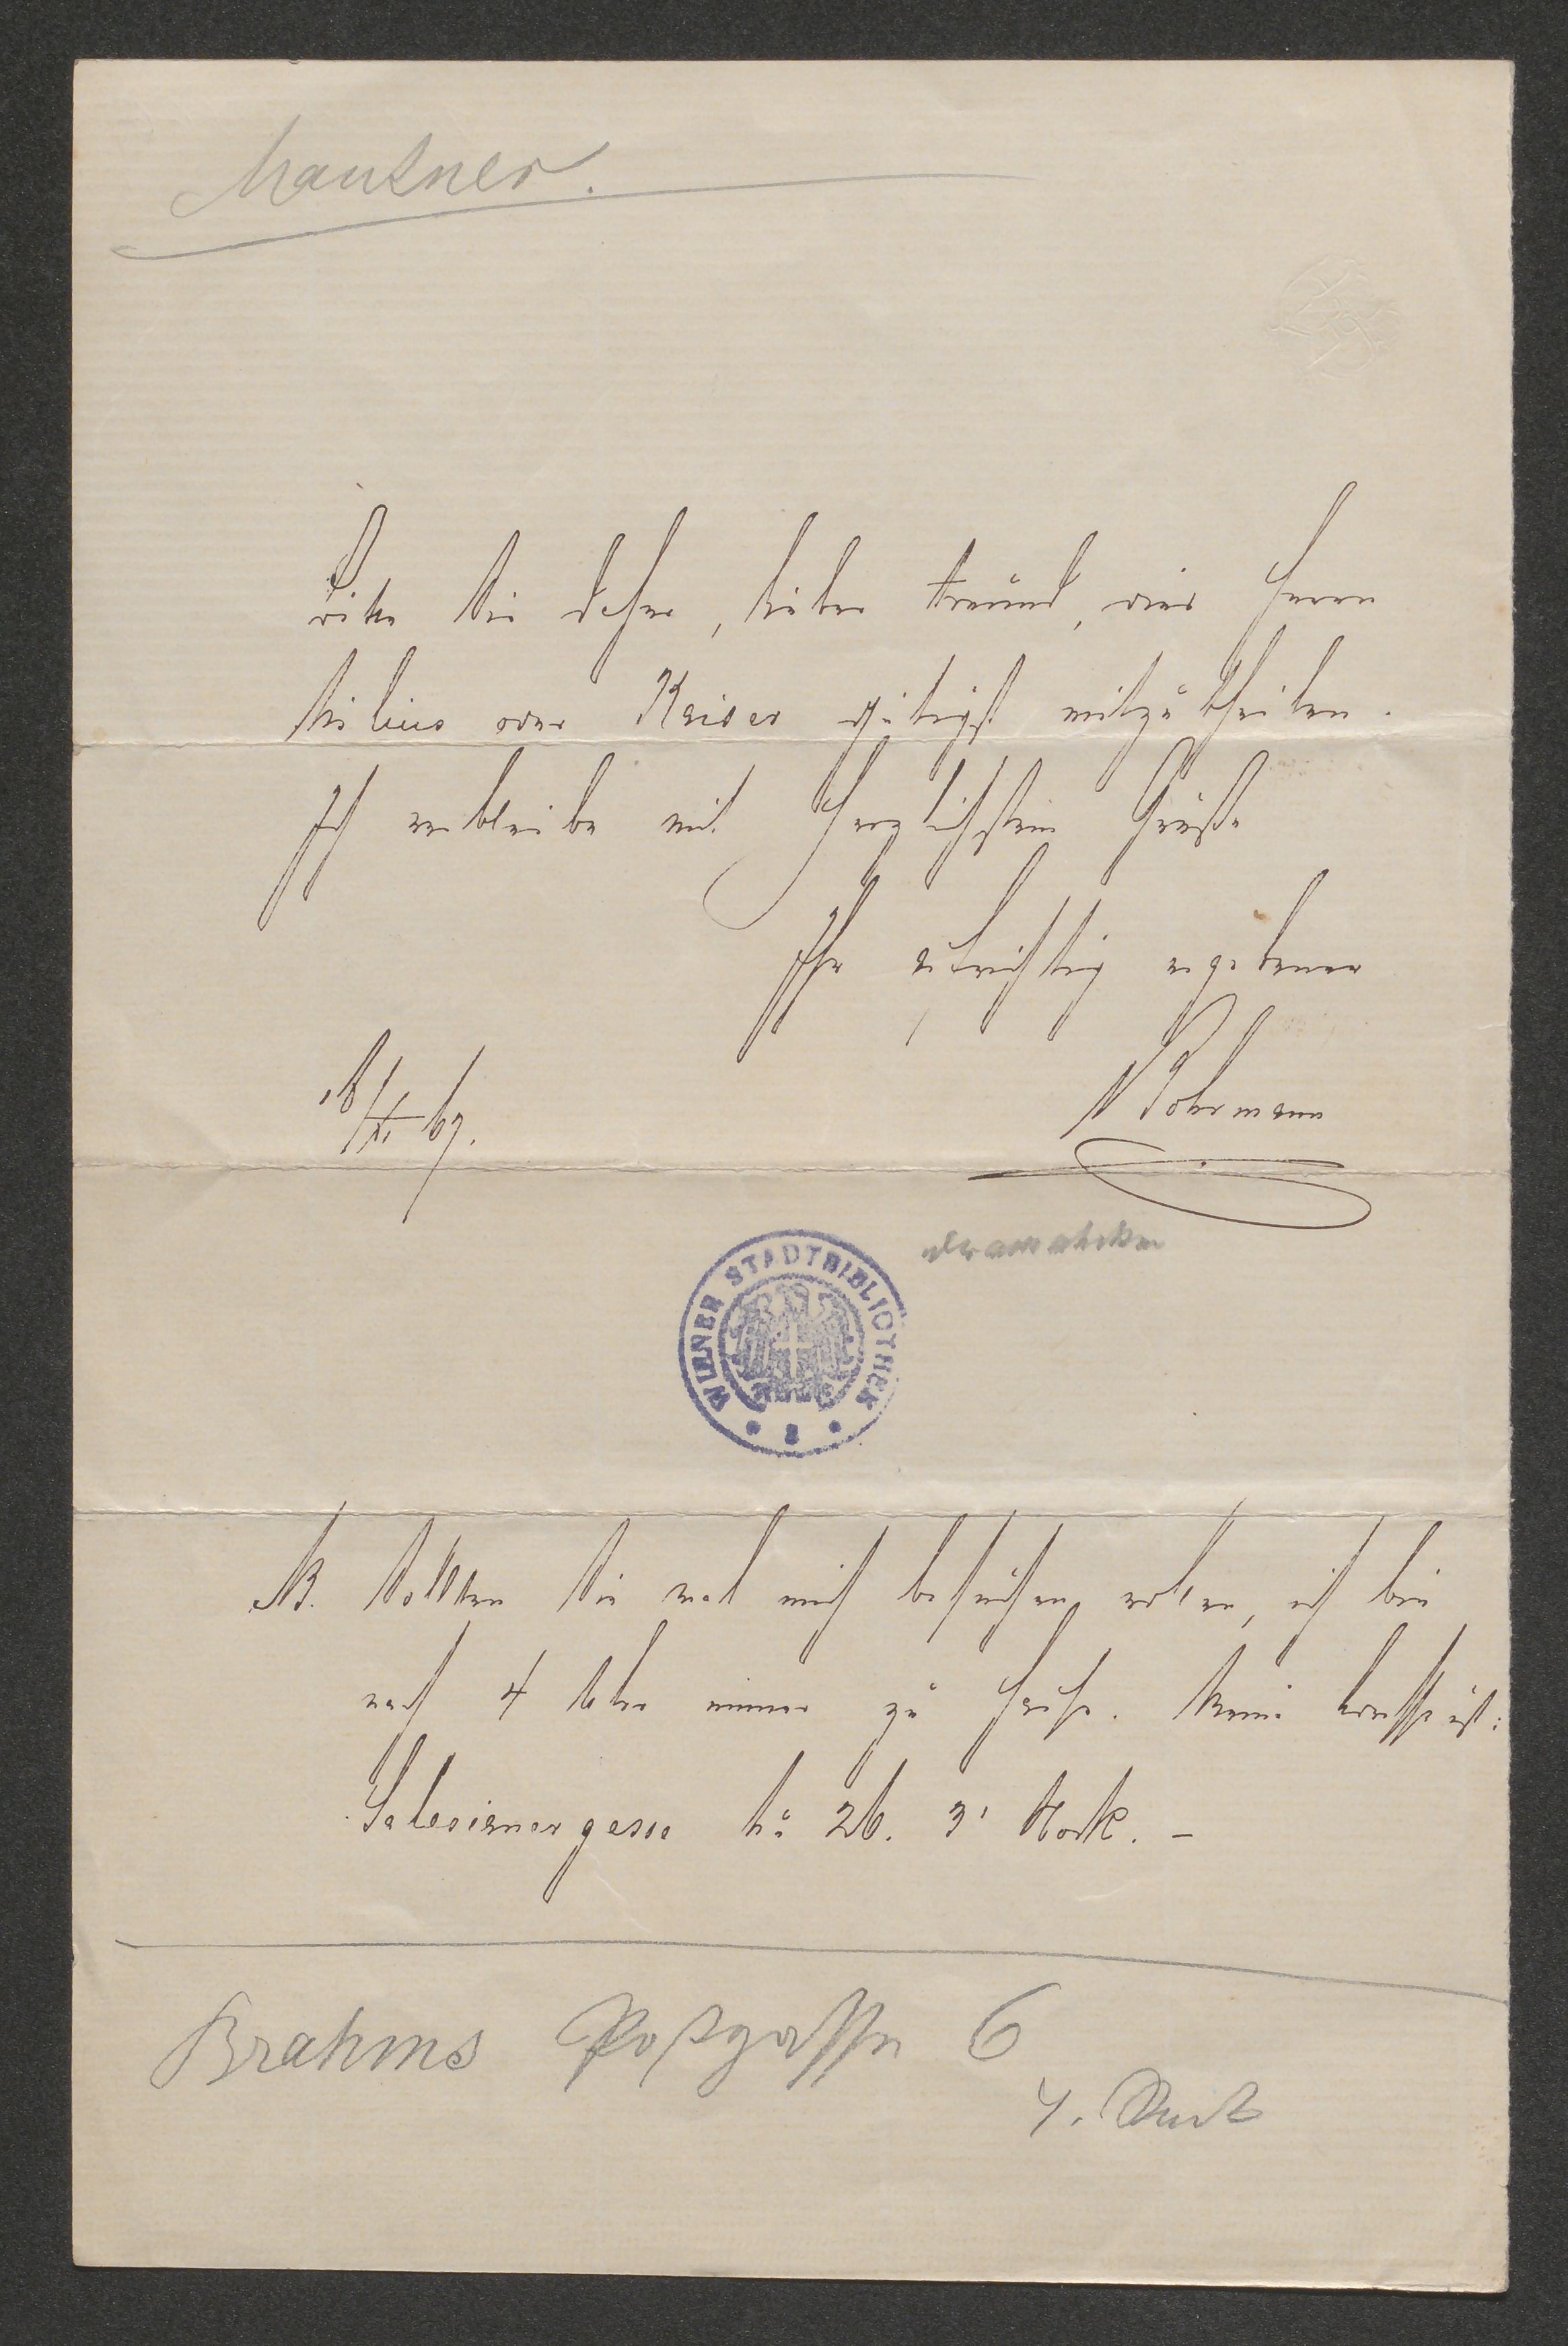 Mautner.
Bitte Sie daher, lieber Freund, dies Herrn
oder Kaiser gütigst mitzutheilen.
Ich verbleibe mit herzlichstem Gruße
Ihr aufrichtig ergebener
18/XI 67.
Dohrmann
Dramatiker
WIENER STADTBIBLIOTHEK
NB. Sollten Sie mal mich besuchen wollen, ich bin
nach 4 Uhr immer zu Hause. Meine Adresse ist:
Salesianergasse No 26. 3t Stock. -
Brahms Postgasse 6
4. Stock